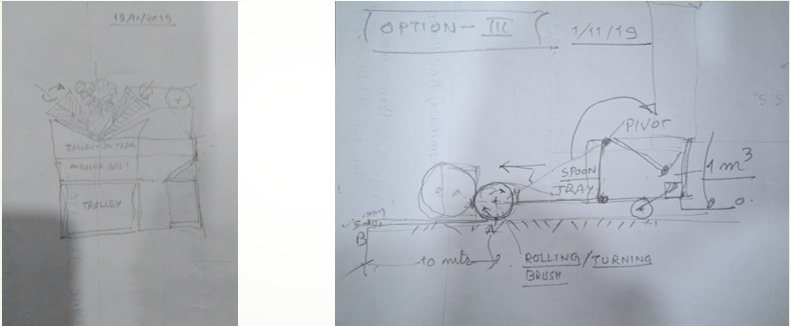 19/10/2019
COLLECTION TRAY
ANGULAR BELT
TROLLEY
OPTION - III
1/11/19
PIVOT
1 m³
SPOON
TRAY
B
A
10 mts
ROLLING/TURNING
BRUSH